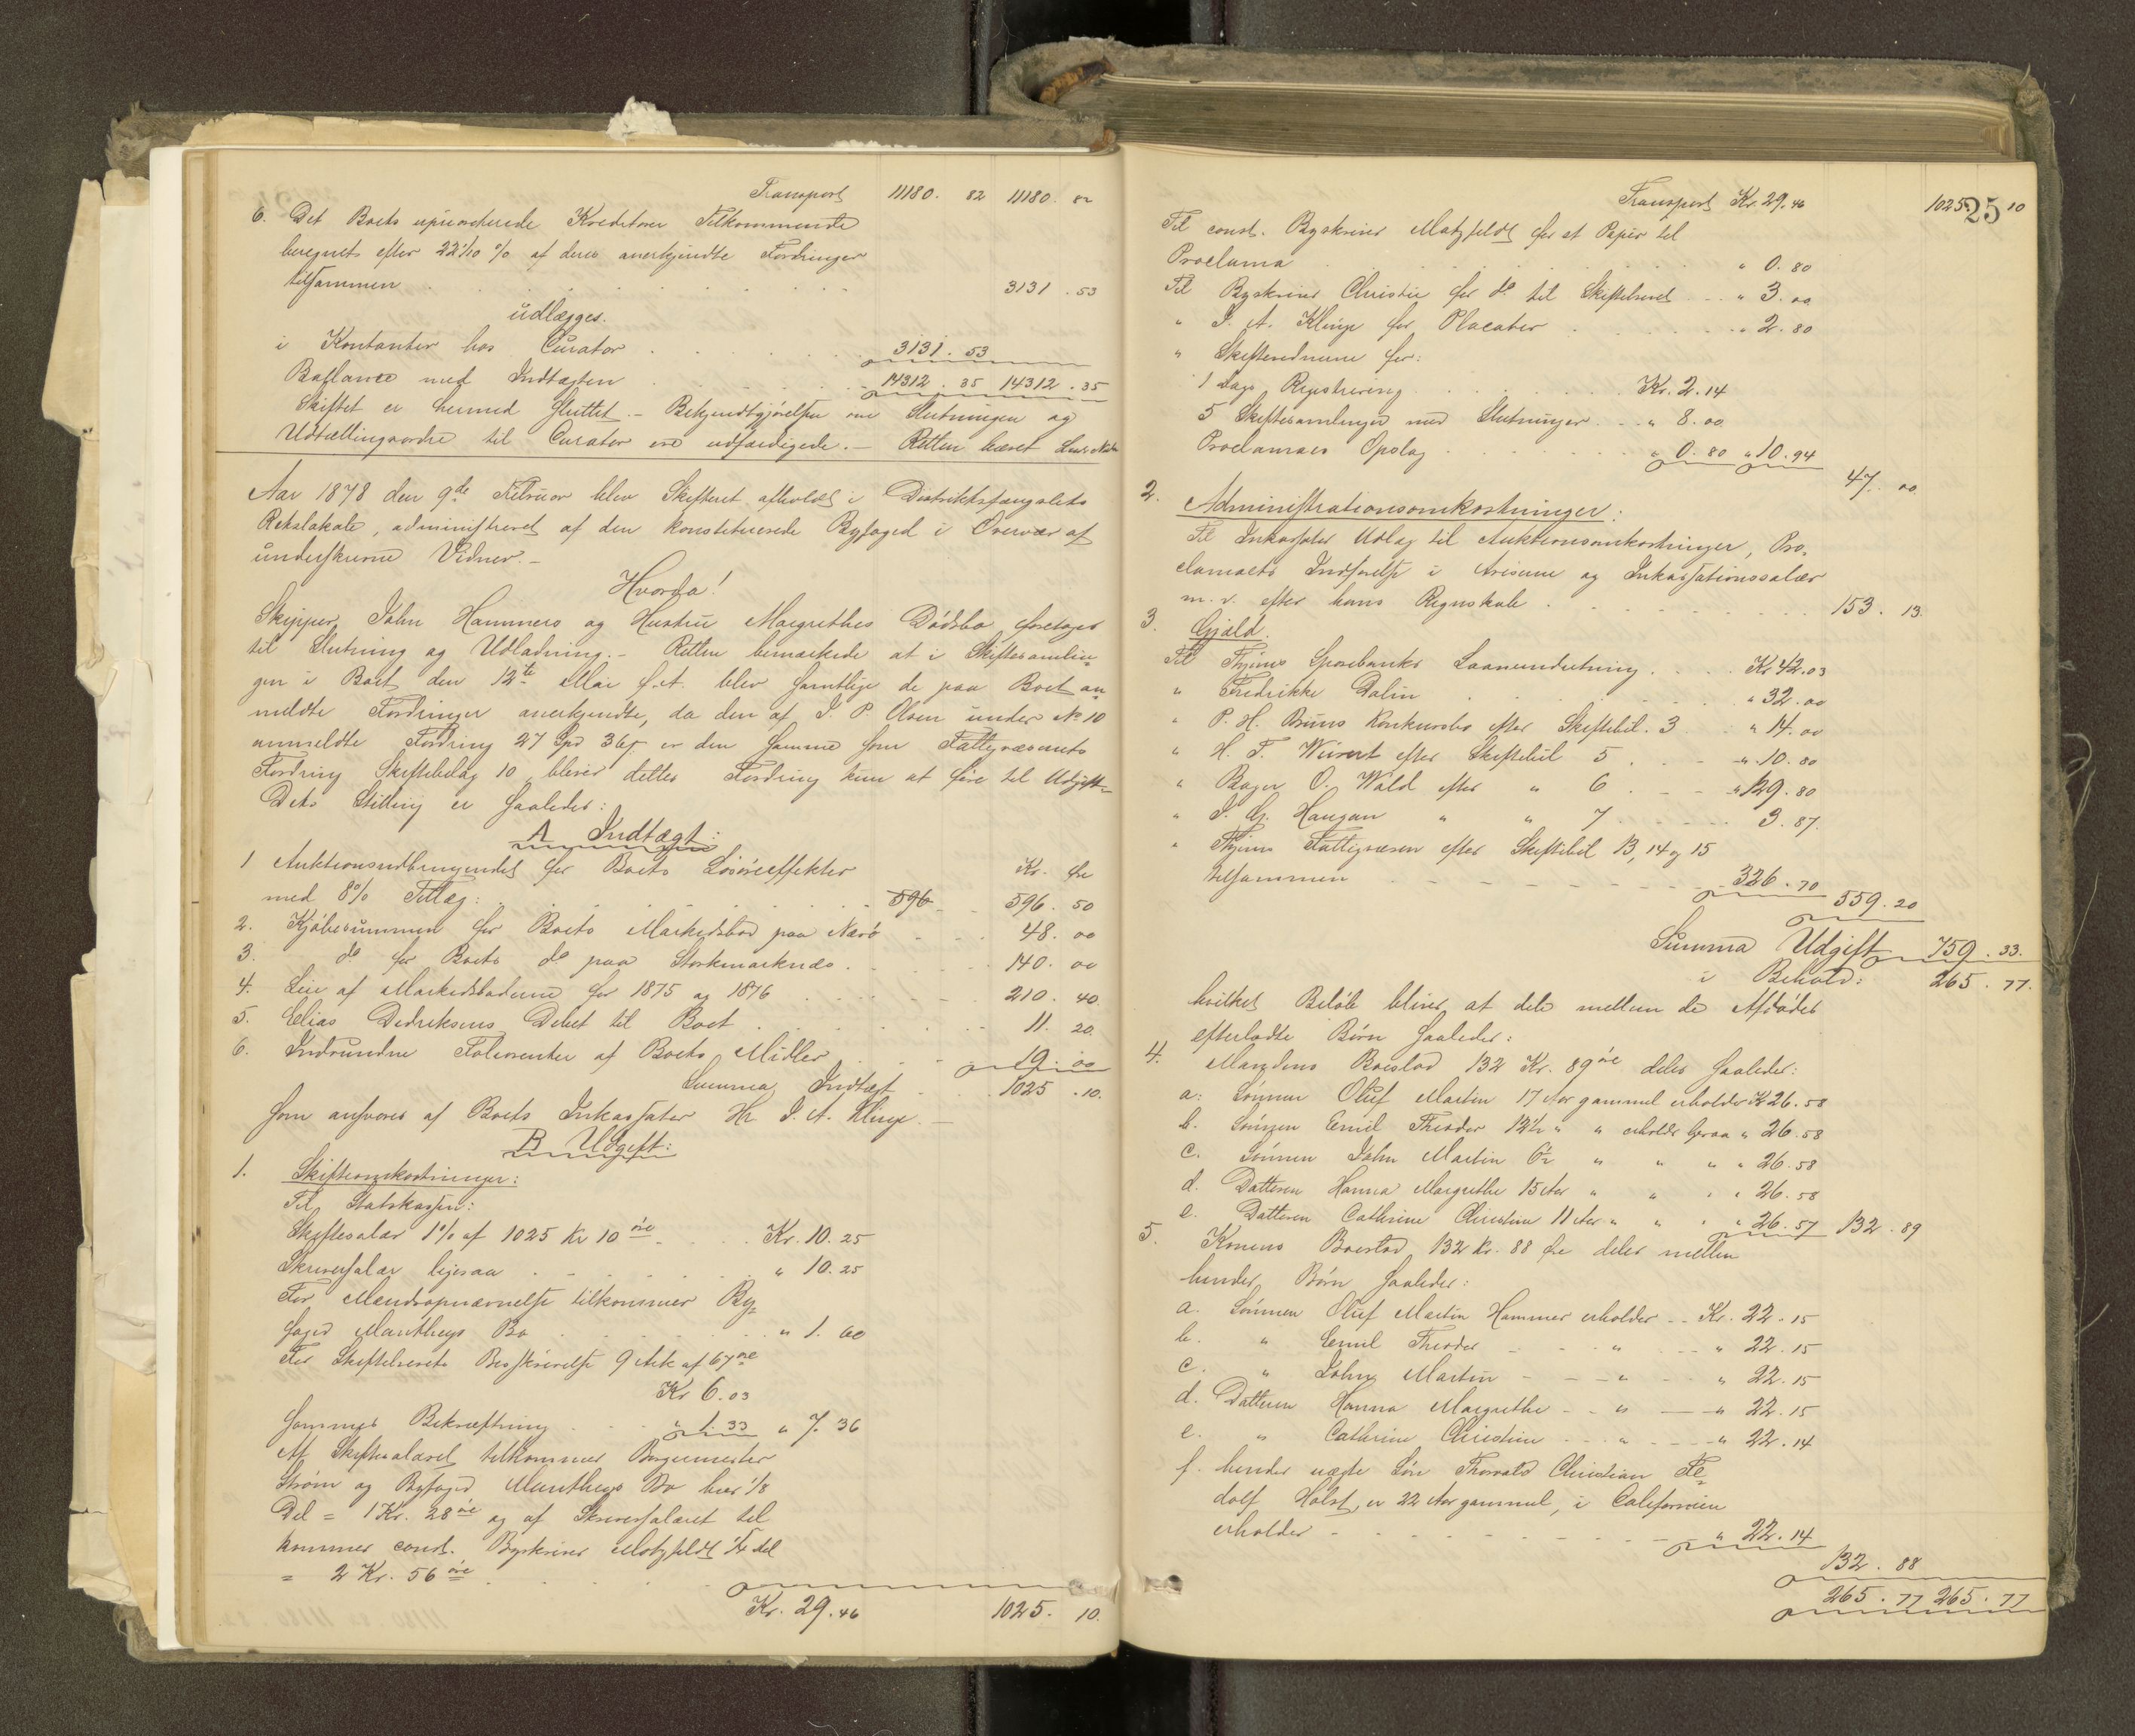 Transport 11180. 82 11180. 82
6. Det Boets uprioriterede Kreditorer Tilkommende
beregnet efter 22 1/10 % af deres anerkjendte Fordringer
tilsammen . . . 3131. 53
udlægges.
i Kontanter hos Curator . . . 3131. 53
Ballance med Indtægten . . . 14312. 35 14312. 35
Skiftet er hermed sluttet. – Bekjendtgjörelse om Slutningen og
Udtællingsordre til Curator ere udfærdigede. – Retten hævet
Aar 1878 den 9de Februar blev Skifteret afholdt i Distriktsfængslets
Retslokale, administreret af den konstituerede Byfoged i Overvær af
underskrevne Vidner. –
Hvorda!
Skipper John Hammers og Hustru Margrethes Dödsbo foretages
til Slutning og Udlodning. – Retten bemærkede at i Skiftesamlin-
gen i Boet den 12te Mai f. A. blev samtlige de paa Boet an
meldte Fordringer anerkjendte, da den af J. P. Olsen under No 10
anmeldte Fordring 27 Spd 36 ß er den samme som Fattigvæsenets
Fordring Skiftebilag 10 bliver dettes Fordring kun at före til Udgift –
Dets Stilling er saaledes:
A Indtægt:
1 Auktionsudbringendet for Boets Lösöreeffekter Kr. Öre
med 8% Tillæg: . . . 596 596. 50
2. Kjöbesummen for Boets Markedsbod paa Nærö . . . 48. 00
3. do for Boets do paa Stokmarknæs . . . 140. 00
4. Leie af Markedsboderne for 1875 og 1876 . . . 210. 40
5. Elias Dedriksens Debet til Boet . . . 11. 20
6. Indvundne Foliorenter af Boets Midler . . . 19. 00
Summa Indtægt 1025. 10.
som ansvares af Boets Inkassator Hr J. A. Klinge. –
B Udgift:
1. Skifteomkostninger:
Til Statskassen:
Skiftesalær 1% af 1025 Kr 10 öre . . . Kr. 10. 25
Skriversalær ligesaa . . . " 10. 25
For Mændsopnævnelse tilkommer By-
foged Mantheys Bo . . . " 1. 60
For Skiftebrevets Beskrivelse 9 Ark af 67 öre
Kr 6. 03
Sammes Bekræftning . . " 1. 33 " 7. 36
Af Skiftesalæret tilkommer Borgermester
Ström og Byfoged Mantheys Bo hver 1/8
Del = 1 Kr. 28 öre og af Skriversalæret til
kommer const. Byskriver Motzfeldt 1/4 del
= 2 Kr. 56 öre . . .
Kr. 29. 46 1025. 10.
Transport Kr. 29. 46 1025. 10
25
Til const. Byskriver Motzfeldt for st. Papir til
Proclama . . . " 0. 80
Til Byskriver Christie for do til Skiftebrevet . . " 3. 00
" J. A. Klinge for Placater . . . " 2. 80
" Skiftevidnerne for:
1 Dags Registrering . . . Kr. 2. 14
5 Skiftesamlinger med Slutninger . . " 8. 00
Proclamaes Opslag . . . " 0. 80 " 10. 94
47. 00
2. Administrationsomkostninger:
Til Inkassator Udlæg til Auktionsomkostninger, Pro-
clamaets Indförelse i Aviserne og Inkassationssalær
m. v. efter hans Regnskab . . . 153. 13.
3. Gjæld.
Til Thjems Sparebanks Laaneindretning . . . Kr 42. 03
" Fredrikke Dalin . . . " 32. 00
" P. H. Bruns Konkursbo efter Skiftebil. 3 . " 14. 00
" H. F. efter Skiftebil 5 . . . " 10. 80
" Bager O. Wald efter " 6 . . . " 129. 80
" J. G. Haugan " " 7 . . . 3. 87.
" Thjems Fattigvæsen efter Skiftebil 13, 14 og 15
tilsammen . . . 326. 70
559. 20
Summa Udgift 759. 33.
i Behold: 265. 77.
hvilket Belöb bliver at dele mellem de Afdödes
efterladte Börn saaledes:
4. Mandens Boeslod 132 Kr. 89 öre deles saaledes:
a: Sönnen Oluf Martin 17 Aar gammel erholder Kr 26. 58
b. Sönnen Emil Theodor 12 1/2 " " erholder heraa " 26. 58
c. Sönnen John Martin 6 1/2 " " " " 26. 58
d. Datteren Hanna Margrethe 15 Aar " " " " 26. 58
e. Datteren Cathrine Christine 11 Aar " " " " 26. 57 132. 89
5. Konens Boeslod 132 Kr. 88 Öre deles mellem
hendes Börn saaledes:
a. Sönnen Oluf Martin Hammer erholder . . Kr. 22. 15
b. " Emil Theodor . . " . . " 22. 15
c. " John Martin . . " . . " 22. 15
d. Datteren Hanna Margrethe . . " . . " 22. 15
e. " Cathrine Christine . . " . . " 22. 14
f. hendes uægte Sön Thorvald Christian Fe-
dolf Holst, er 22 Aar gammel, i Californien
erholder . . . " 22. 14
132. 88
265. 77 265. 77